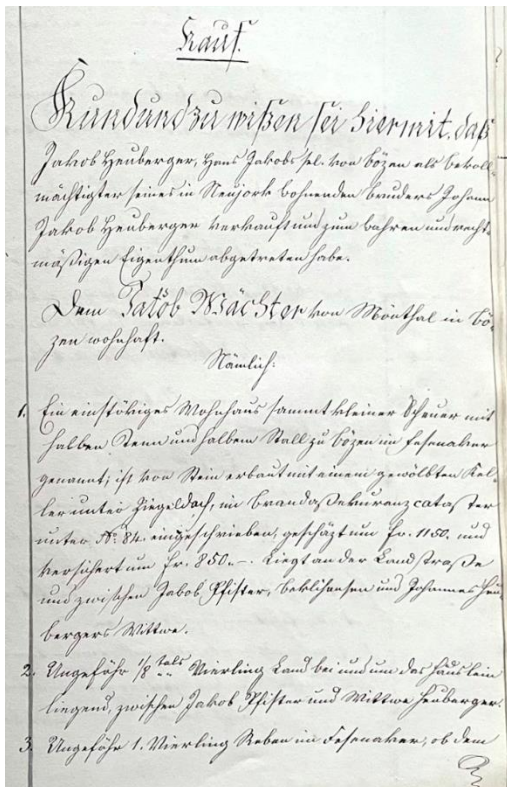 Kauf.
Kund und zu wißen sei hiermit, daß
Jakob Heuberger, Hans Jakobs sel. von Bözen als bevoll-
mächtigter seines in Neujork wohnenden Bruders Johann
Jakob Heuberger verkauft und zum wahren und recht-
mäßigen Eigenthum abgetreten habe.
Dem Jakob Wächter von Mönthal in Bö-
zen wohnhaft.
Nämlich:
1. Ein einstökiges Wohnhaus sammt kleiner Scheuer mit
halben Tenn und halbem Stall zu Bözen im Fesenaker
genannt; ist von Stein erbaut mit einem gewölbten Kel-
ler unter Ziegeldach, im Brandaßekuranzcataster
unter No. 84. eingeschrieben, geschäzt um fr. 1150. und
versichert um fr. 850.-. Liegt an der Landstraße
und zwischen Jakob Pfister, und Johannes Heu-
bergers Wittwe.
2. Ungefähr 1/8 tels Vierling Land bei und um das Häuslein
liegend, zwischen Jakob Pfister und Wittwe Heuberger.
3. Ungefähr 1. Vierling Reben im Fesenaker, ob dem